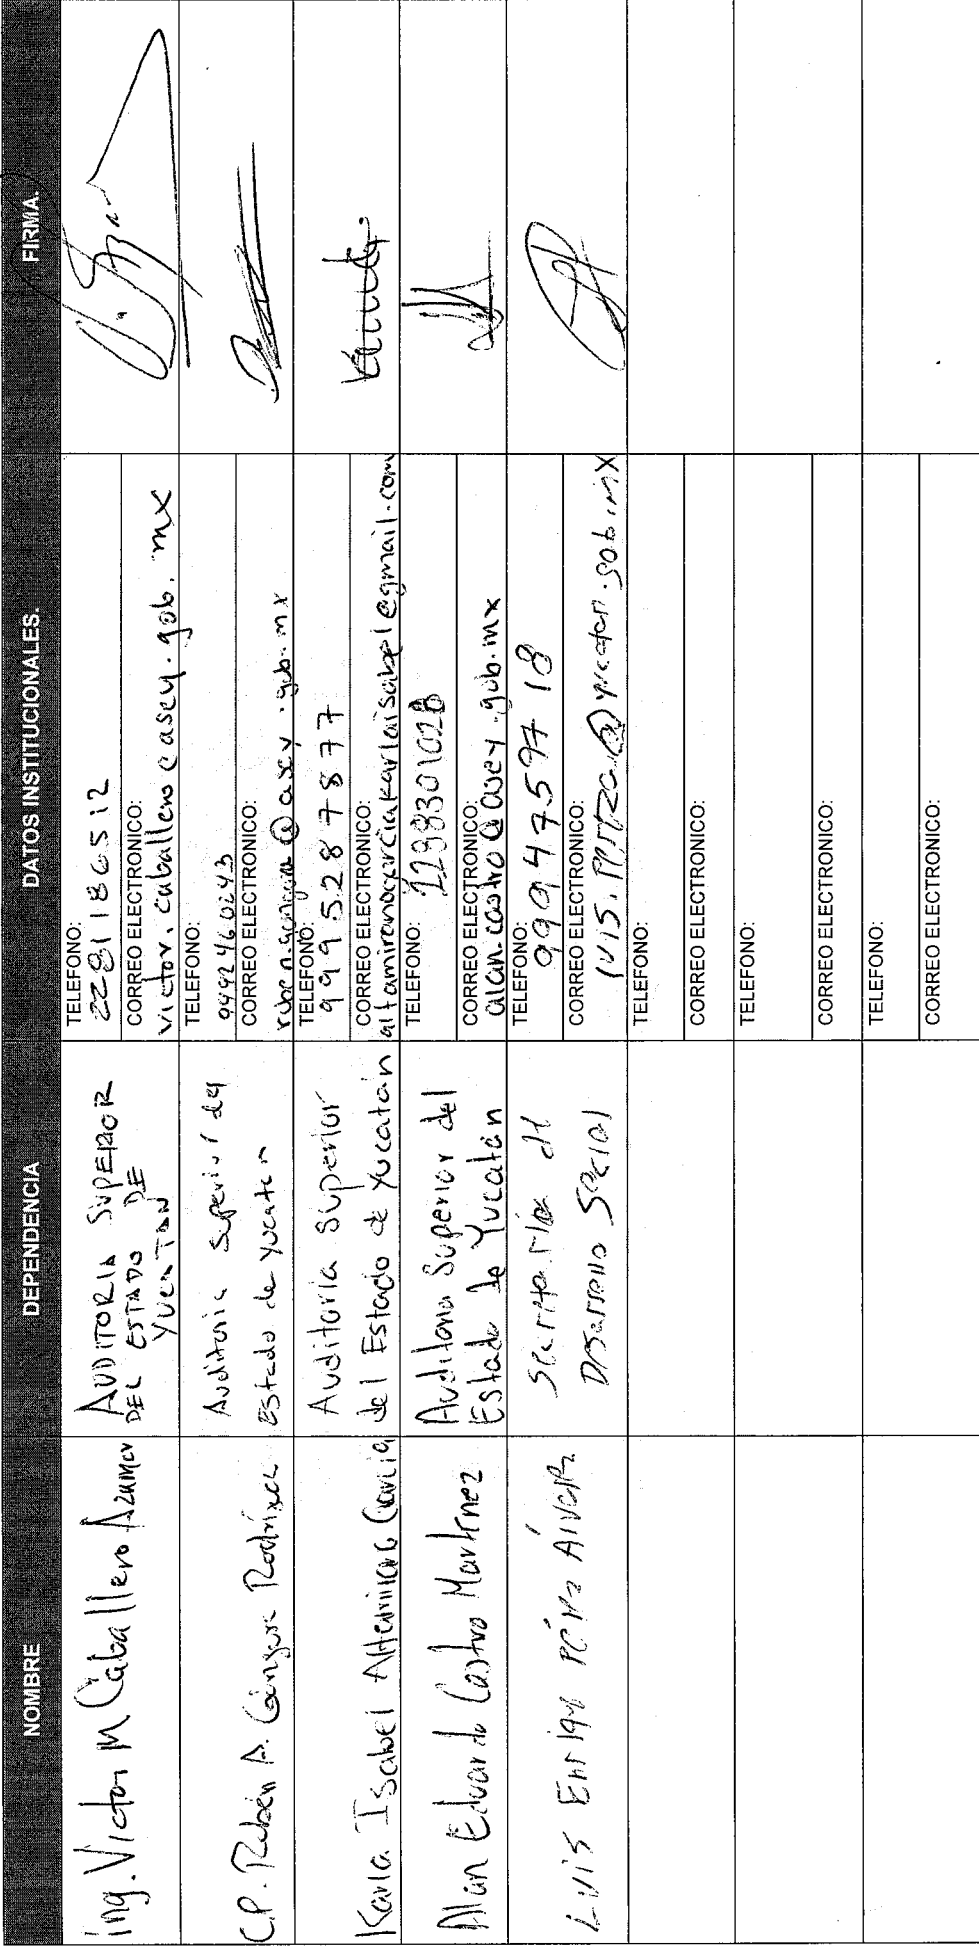 NOMBRE DEPENDENCIA DATOS INSTITUCIONALES. FIRMA.
Ing. Victor M Caballero Azamar
AUDITORIA SUPERIOR
DEL ESTADO DE
YUCATAN
TELEFONO:
2281186512
CORREO ELECTRONICO:
victor.caballero@asey.gob.mx
C.P. Rubén A. Góngora Rodríguez
Auditoria Superior del
Estado de Yucatan
TELEFONO:
9992460243
CORREO ELECTRONICO:
ruben.gongora@asey.gob.mx
Karla Isabel Altamirano García
Auditoría Superior
del Estado de Yucatán
TELEFONO:
9995287877
CORREO ELECTRONICO:
altamiranogarciakarlaisabel@gmail.com
Karla
Alan Eduardo Castro Martínez
Auditoria Superior del
Estado de Yucatán
TELEFONO:
CORREO ELECTRONICO:
alan.castro@asey.gob.mx
Luis Enrique Pérez
Secretaría de
Desarrollo Social
TELEFONO:
9994759718
CORREO ELECTRONICO:
TELEFONO:
CORREO ELECTRONICO:
TELEFONO:
CORREO ELECTRONICO:
TELEFONO:
CORREO ELECTRONICO: